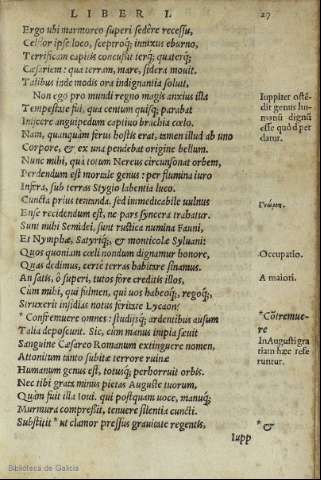 LIBER I. 27
Ergo ubi marmoreo superi sedêre recessu,
Celsior ipse loco, sceptroq; innixus eburno,
Terrificam capitis concussit terq; quaterq;
Cæsariem: qua terram, mare, sidera mouit.
Talibus inde modis ora indignantia soluit.
Non ego pro mundi regno magis anxius illa
Tempestate fui, qua centum quisq; parabat
Iniicere anguipedum captiuo brachia cœlo.
Nam, quanquàm ferus hostis erat, tamen illud ab uno
Corpore, & ex una pendebat origine bellum.
Nunc mihi, qua totum Nereus circunsonat orbem,
Perdendum est mortale genus: per flumina iuro
Infera, sub terras Stygio labentia luco.
Cuncta prius tentanda. sed immedicabile uulnus
Ense recidendum est, ne pars syncera trahatur.
Sunt mihi Semidei, sunt rustica numina Fauni,
Et Nymphæ, Satyriq;, & monticolæ Syluani:
Quos quoniam cœli nondum dignamur honore,
Quas dedimus, certè terras habitare sinamus.
An satis, ô superi, tutos fore creditis illos,
Cùm mihi, qui fulmen, qui uos habeoq;, regoq;,
Struxerit insidias notus feritate Lycaon?
* Confremuere omnes: studijsq; ardentibus ausum
Talia deposcunt. Sic, cùm manus impia sæuit
Sanguine Cæsareo Romanum extinguere nomen,
Attonitum tanto subitæ terrore ruinæ
Humanum genus est, totusq; perhorruit orbis.
Nec tibi grata minus pietas Auguste tuorum,
Quàm fuit illa Ioui. qui postquam uoce, manuq;
Murmura compressit, tenuere silentia cuncti.
Substitit * ut clamor pressus grauitate regentis,
Iupp
Iuppiter ostẽ-
dit genus hu-
manũ dignũ
esse quòd per
datur.
Γνώμη.
Occupatio.
A maiori.
*Cõtremue-
re
In Augusti gra
tiam hæc refe
runtur.
*&
Biblioteca de Galicia